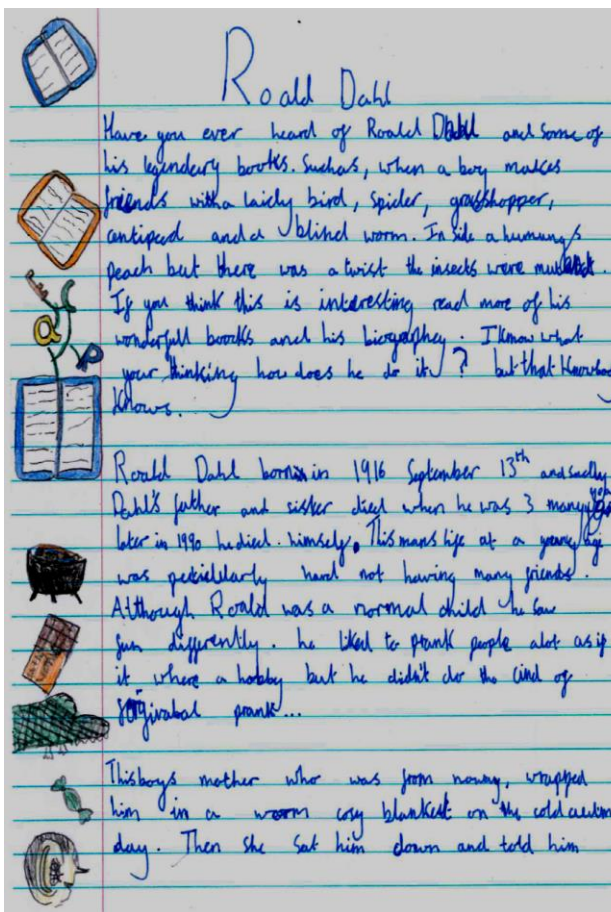 Roald Dahl
Have you ever heard of Roald Dahl and some of
his legendery books. Suchas, when a boy makes
friends with a laidy bird, spider, grasshopper,
cantiped and a blind worm. In side a humungs
peach but there was a twist the insects were
If you think this is interesting read more of his
wonderfull boocks and his biographey. I know what
your thinking how does he do it? but that
knows.
Roald Dahl born in 1916 September 13th and sadly
Dahl's father and sister died when he was 3 many
later in 1990 he died. himself. This mans life at a young age
was hard not having many friends.
Although Roald was a normal child he saw
fun differently. he liked to prank people alot as if
it where a hobby but he didn't do the cind of
prank...
This boys mother who was from norway, wrapped
him in a worm cosy blankest on the cold
day. Then she sat him down and told him